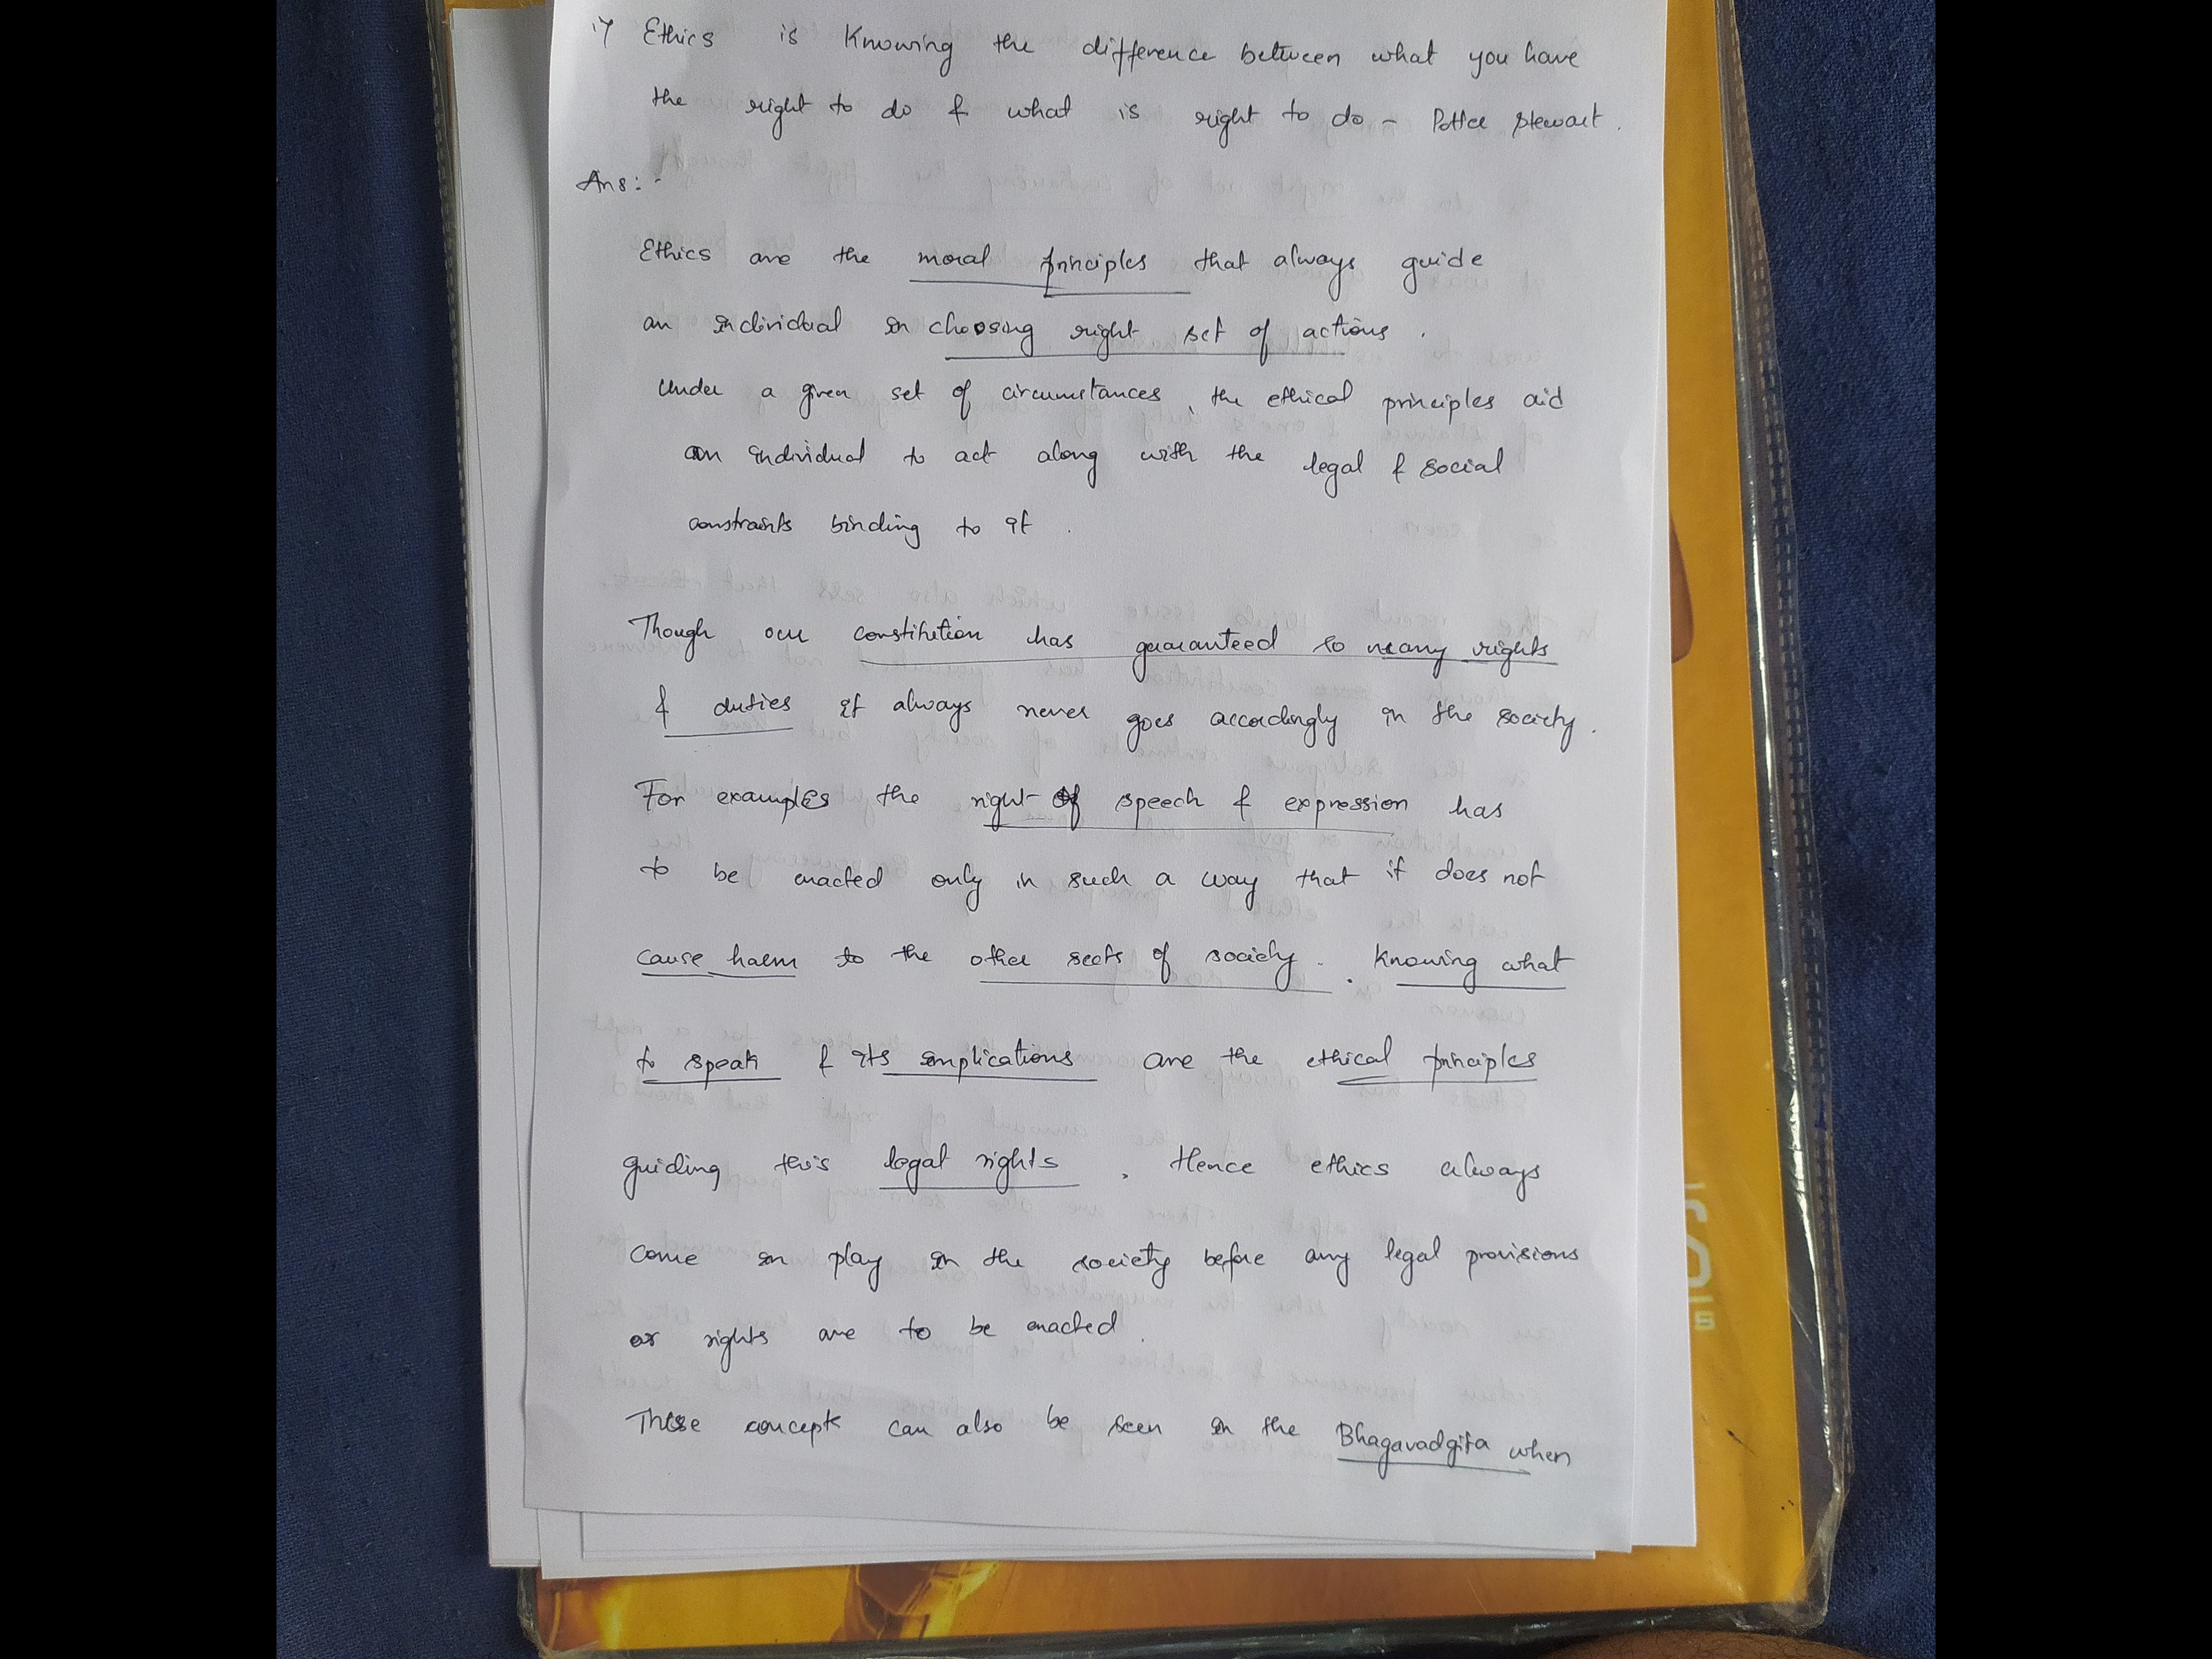 i) Ethics is Knowing the difference between what you have
the right to do & what is right to do - Potter Stewart.
Ans:-
Ethics are the moral principles that always guide
an individual in choosing right set of actions.
Under a given set of circumstances, the ethical principles aid
an individual to act along with the legal & social
constraints binding to it.
Though our constitution has guaranteed so many rights
& duties it always never goes accordingly in the society.
For examples the right of speech & expression has
to be enacted only in such a way that it does not
cause harm to the other sects of society. Knowing what
to speak & its implications are the ethical principles
guiding this legal rights. Hence ethics always
come in play in the society before any legal provisions
or rights are to be enacted.
These concept can also be seen in the Bhagavadgita when